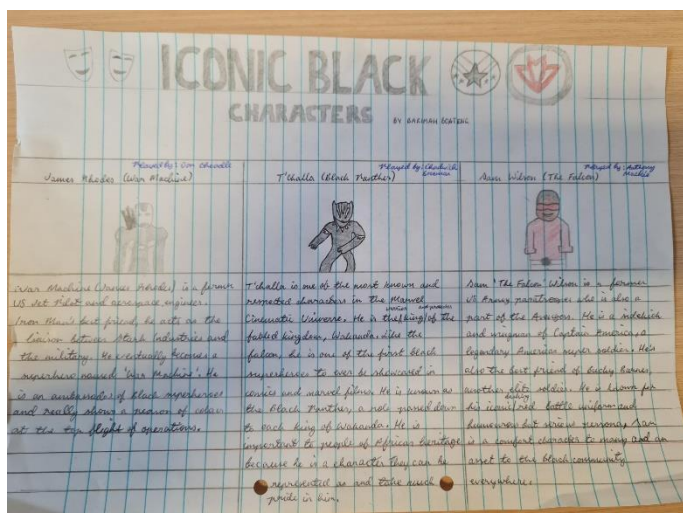 ICONIC BLACK
CHARACTERS
BY BARIMAH BOATENG
Played by: Don Cheadle
James Rhodes (War Machine)
War Machine (James Rhodes) is a former
US Jet Pilot and aerospace engineer.
Iron Man's best friend, he acts as the
liaison between Stark Industries and
the military. He eventually becomes a
superhero named 'War Machine'. He
is an ambassador of black superheroes
and really shows a person of colour
at the top flight of operations.
Played by: Chadwick
Boseman
T'challa (Black Panther)
T'challa is one of the most known and
respected characters in the Marvel
Cinematic Universe. He is the king of the
fabled kingdom, Wakanda. Like the
falcon, he is one of the first black
superheroes to ever be showcased in
comics and marvel films. He is known as
the Black Panther, a role passed down
to each king of Wakanda. He is
important to people of African heritage
because he is a character they can be
represented as and take much
pride in him.
Played by: Anthony
Mackie
Sam Wilson (The Falcon)
Sam 'The Falcon' Wilson is a former
US Army paratrooper who is also a
part of the Avengers. He is a sidekick
and wingman of Captain America, a
legendary American super soldier. He's
also the best friend of Bucky Barnes,
another elite soldier. He is known for
his iconic red battle uniform and
humourous but serious persona. Sam
is a comfort character to many and an
asset to the black community
everywhere.